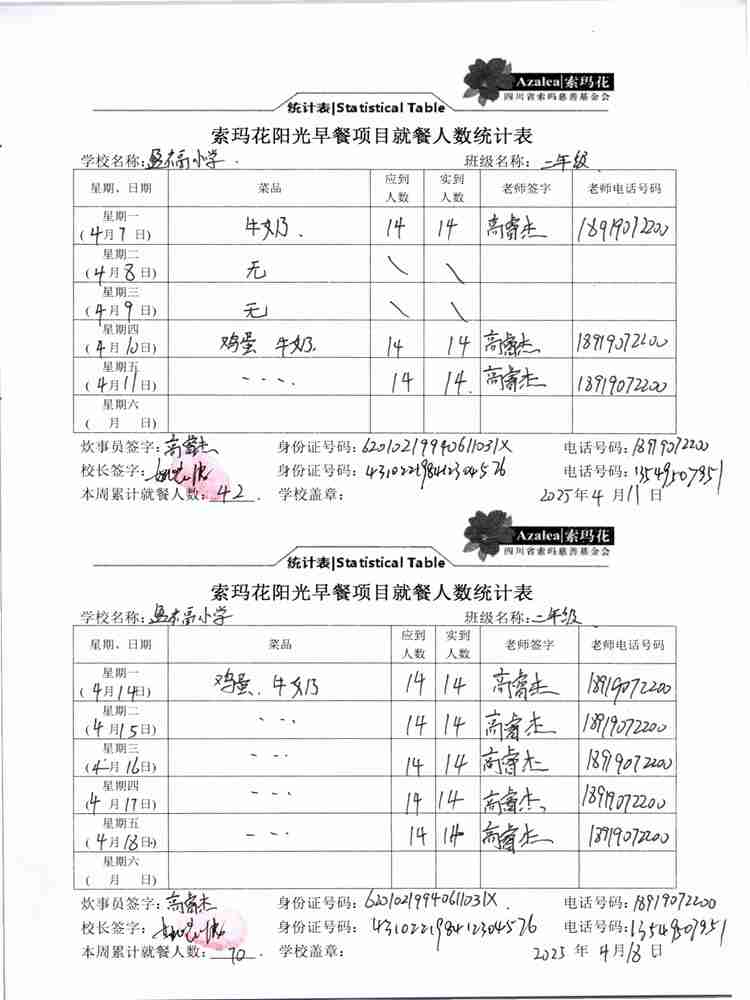 Azalea|索玛花
四川省索玛慈善基金会
统计表|Statistical Table
索玛花阳光早餐项目就餐人数统计表
学校名称: 小学 班级名称: 二年级
星期、日期 菜品 应到人数 实到人数 老师签字 老师电话号码
星期一 (4月7日) 牛奶. 14 14 高睿杰 18919072200
星期二 (4月8日) 无 \ \
星期三 (4月9日) 无 \ \
星期四 (4月10日) 鸡蛋 牛奶. 14 14 高睿杰 18919072200
星期五 (4月11日) - - -. 14 14. 高睿杰 18919072200
星期六 ( 月 日)
炊事员签字: 高睿杰 身份证号码: 62010219940611031X 电话号码: 18919072200
校长签字: 身份证号码: 431022198412304576 电话号码: 13549507951
本周累计就餐人数: 42. 学校盖章: 2025年4月11日
Azalea|索玛花
四川省索玛慈善基金会
统计表|Statistical Table
索玛花阳光早餐项目就餐人数统计表
学校名称: 小学 班级名称: 二年级
星期、日期 菜品 应到人数 实到人数 老师签字 老师电话号码
星期一 (4月14日) 鸡蛋. 牛奶 14 14 高睿杰 18919072200
星期二 (4月15日) - - -. 14 14 高睿杰 18919072200
星期三 (4月16日) - - -. 14 14 高睿杰 18919072200
星期四 (4月17日) - - -. 14 14 高睿杰. 18919072200
星期五 (4月18日) - - -. 14 14 高睿杰 18919072200
星期六 ( 月 日)
炊事员签字: 高睿杰 身份证号码: 62010219940611031X. 电话号码: 18919072200
校长签字: 身份证号码: 431022198412304576 电话号码: 13549507951
本周累计就餐人数: 70. 学校盖章: 2025年4月18日